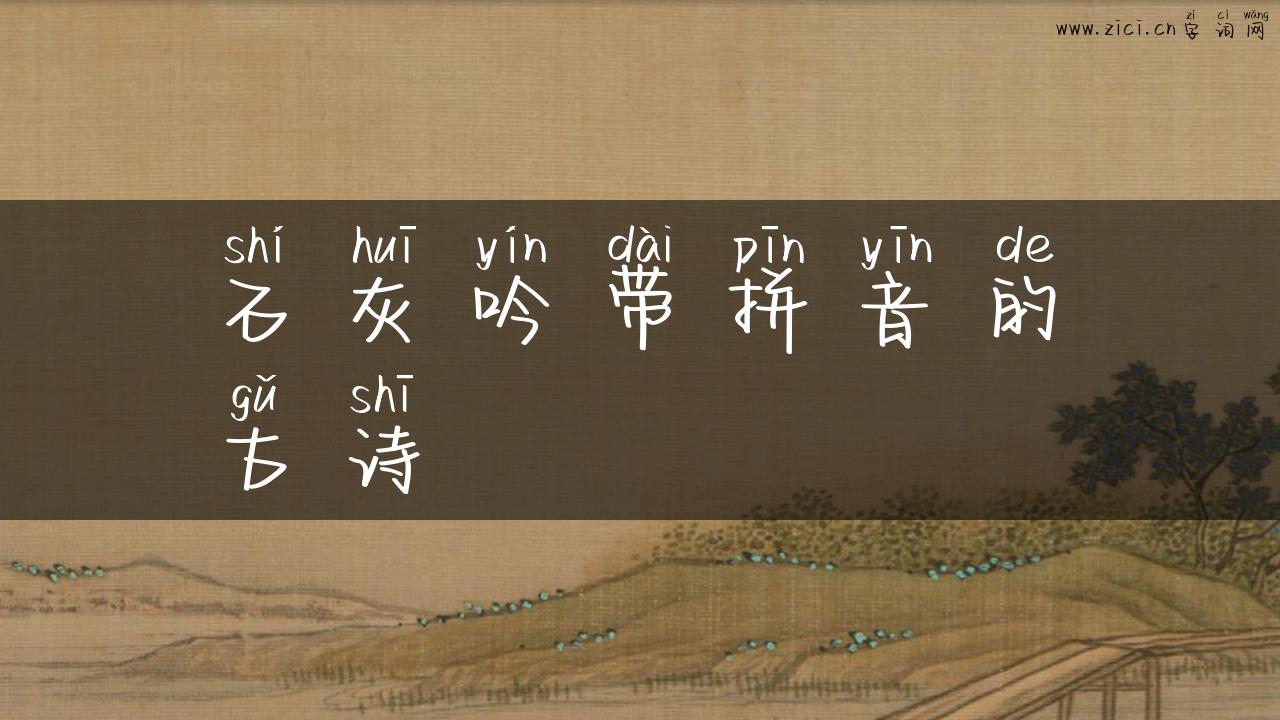 zì cí wǎng
www.zici.cn 字词网
shí huī yín dài pīn yīn de
石灰吟带拼音的
gǔ shī
古诗